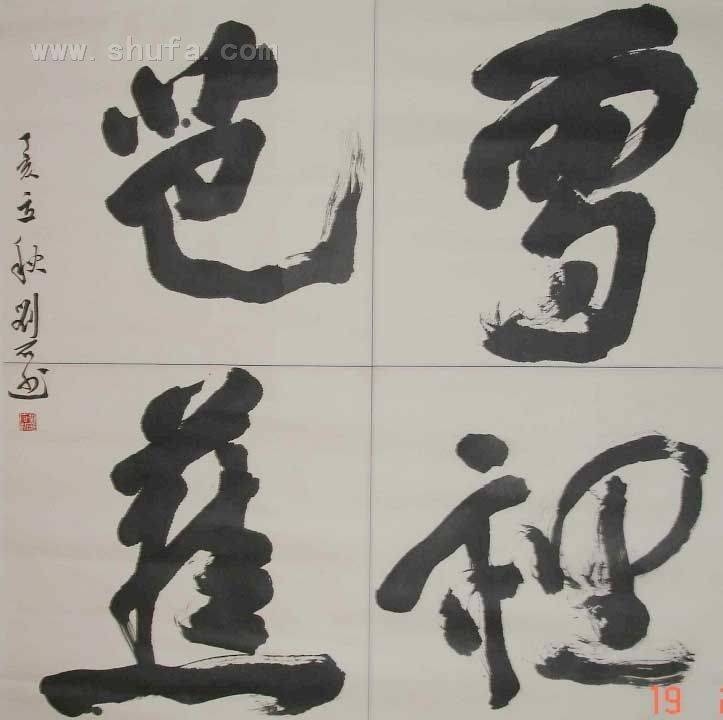 雪裡
芭蕉
丁亥立秋刘
www.shufa.com
19